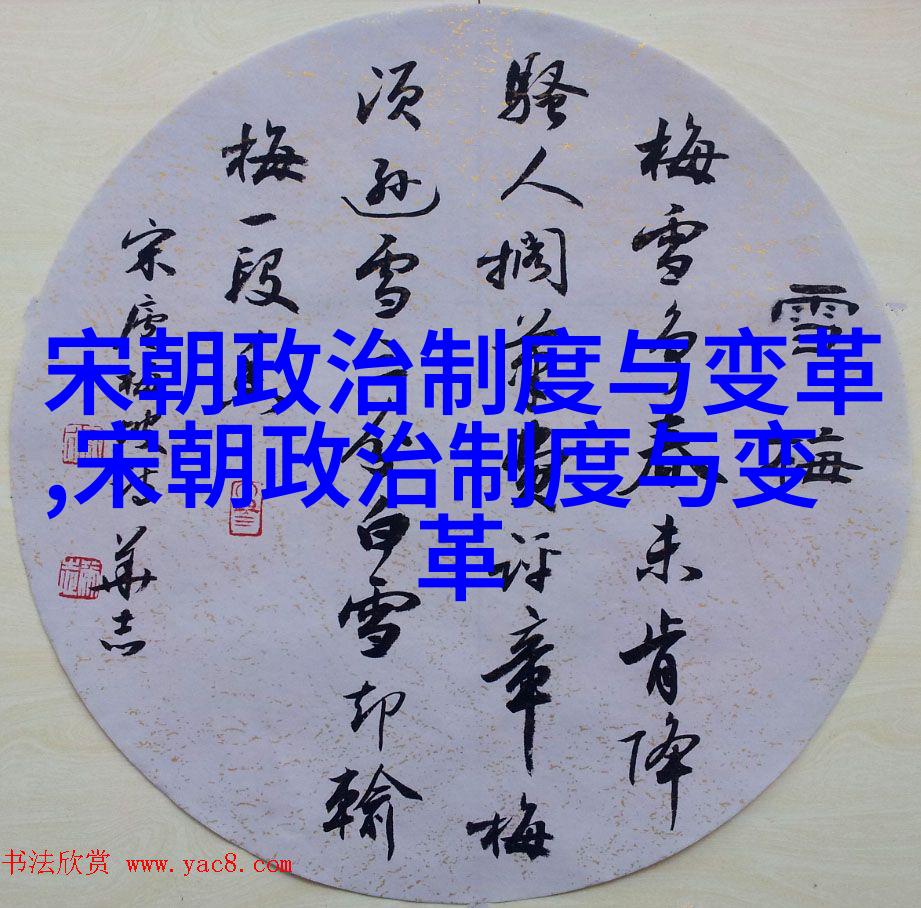 宋朝政治制度与变革
,宋朝政治制度与变
革
雪梅
梅雪争春未肯降
騷人搁筆費评章梅
须逊雪三分白雪却輸
梅一段香
宋卢梅坡诗 華志
书法欣赏 www.yac8.com